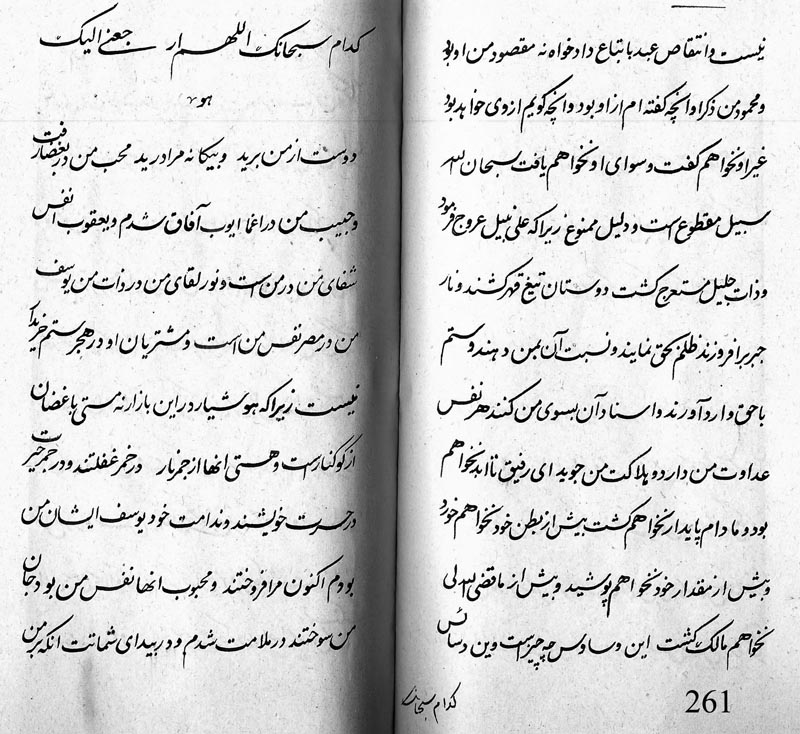 نیست و انتقاص عبد باتباع دلخواه نه مقصود من او بود
و محمود من ذکر او آنچه گفته ام از او بود و آنچه گویم از وی خواهد بود
غیر او نخواهم گفت و سوای او نخواهم یافت سبحان الله
سبیل مقطوع است و دلیل ممنوع زیرا که علی نبیل عروج فرمود
و ذات جلیل مستعرج گشت دوستان تیغ قهر کشند و نار
جبر برافروزند ظلم بحق نمایند و نسبت آن بمن دهند و ستم
با حق وارد آورند و اسناد آن بسوی من کنند هر نفس
عداوت من دارد و هلاکت من جوید ای رفیق تا ابد نخواهم
بود و مادام پایدار نخواهم گشت بیش از بطن خود نخواهم خورد
و بیش از مقدار خود نخواهم پوشید و بیش از ما قضی الله لی
نخواهم مالک گشت این وساوس چه چیز است وین دسائس
کدام سبحانک
261
کدام سبحانک اللهم ار جعنی الیک
هو
دوست از من برید و بیگانه مرا درید محب من در بغضا رفت
و حبیب من در اغما ایوب آفاق شدم و یعقوب انفس
شفای من در من است و نور لقای من در ذات من یوسف
من در مصر نفس من است و مشتریان او در هجر ستم خریدار
نیست زیرا که هوشیار در این بازار نه مستی باغضان
از کوکنار است و هستی آنها از جمر نار در خمر غفلتند و در جمر حیرت
در حسرت خویشند و ندامت خود یوسف ایشان من
بودم اکنون مرا فروختند و محبوب آنها نفس من بود جان
من سوختند در ملامت شدم و در بیدای شماتت آنکه بر من